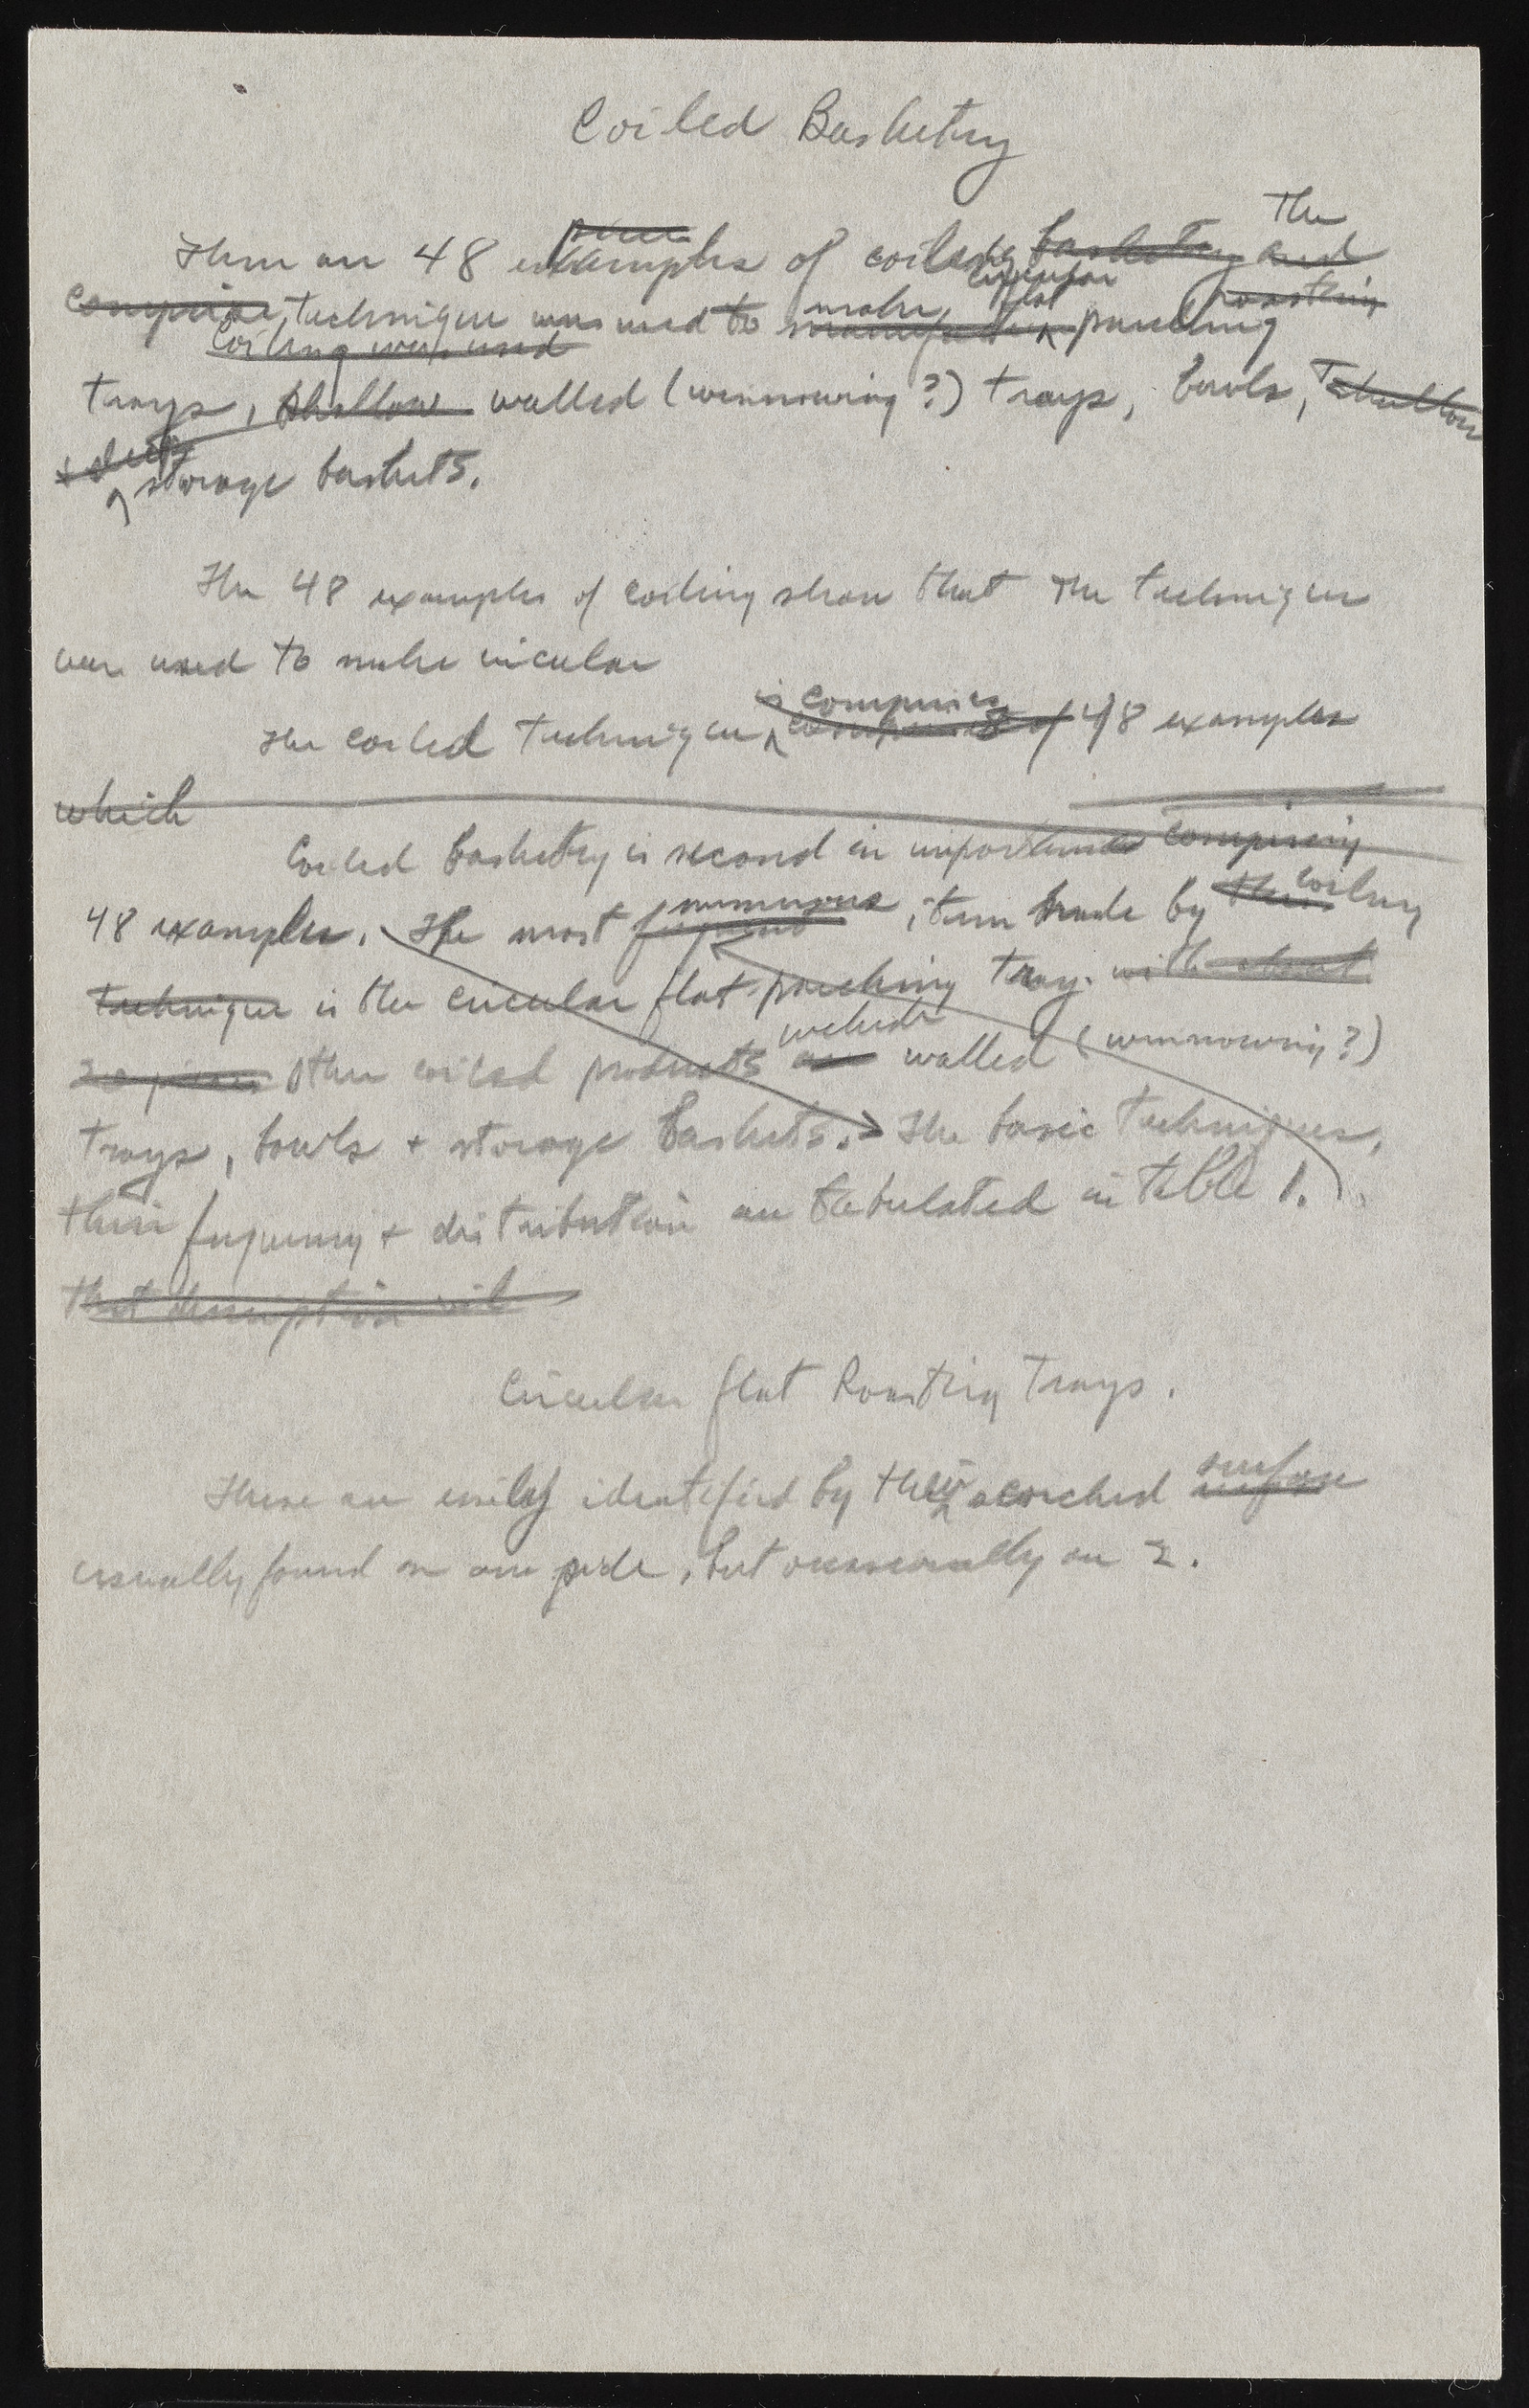 Coiled Basketry
The
There are 48 examples of coiling basketry and
comprise, technique was used to make circular flat parching roasting
Coiling was used
trays, shallow walled (winnowing?) trays, bowls, + shallow
+ deep storage baskets.
The 48 examples of coiling show that the technique
was used to make circular
is comprises
The coiled technique of 48 examples
which
Coiled basketry is second in importance comprising
48 examples. The most frequent numerous item made by this coiling
technique is the circular flat parching tray. with about
20 pieces Other coiled products are include walled (winnowing?)
trays, bowls + storage baskets. The basic techniques,
their frequency + distribution are tabulated in table 1.
that description will
Circular flat Roasting Trays.
These are easily identified by their scorched surface
usually found on one side, but occasionally on 2.